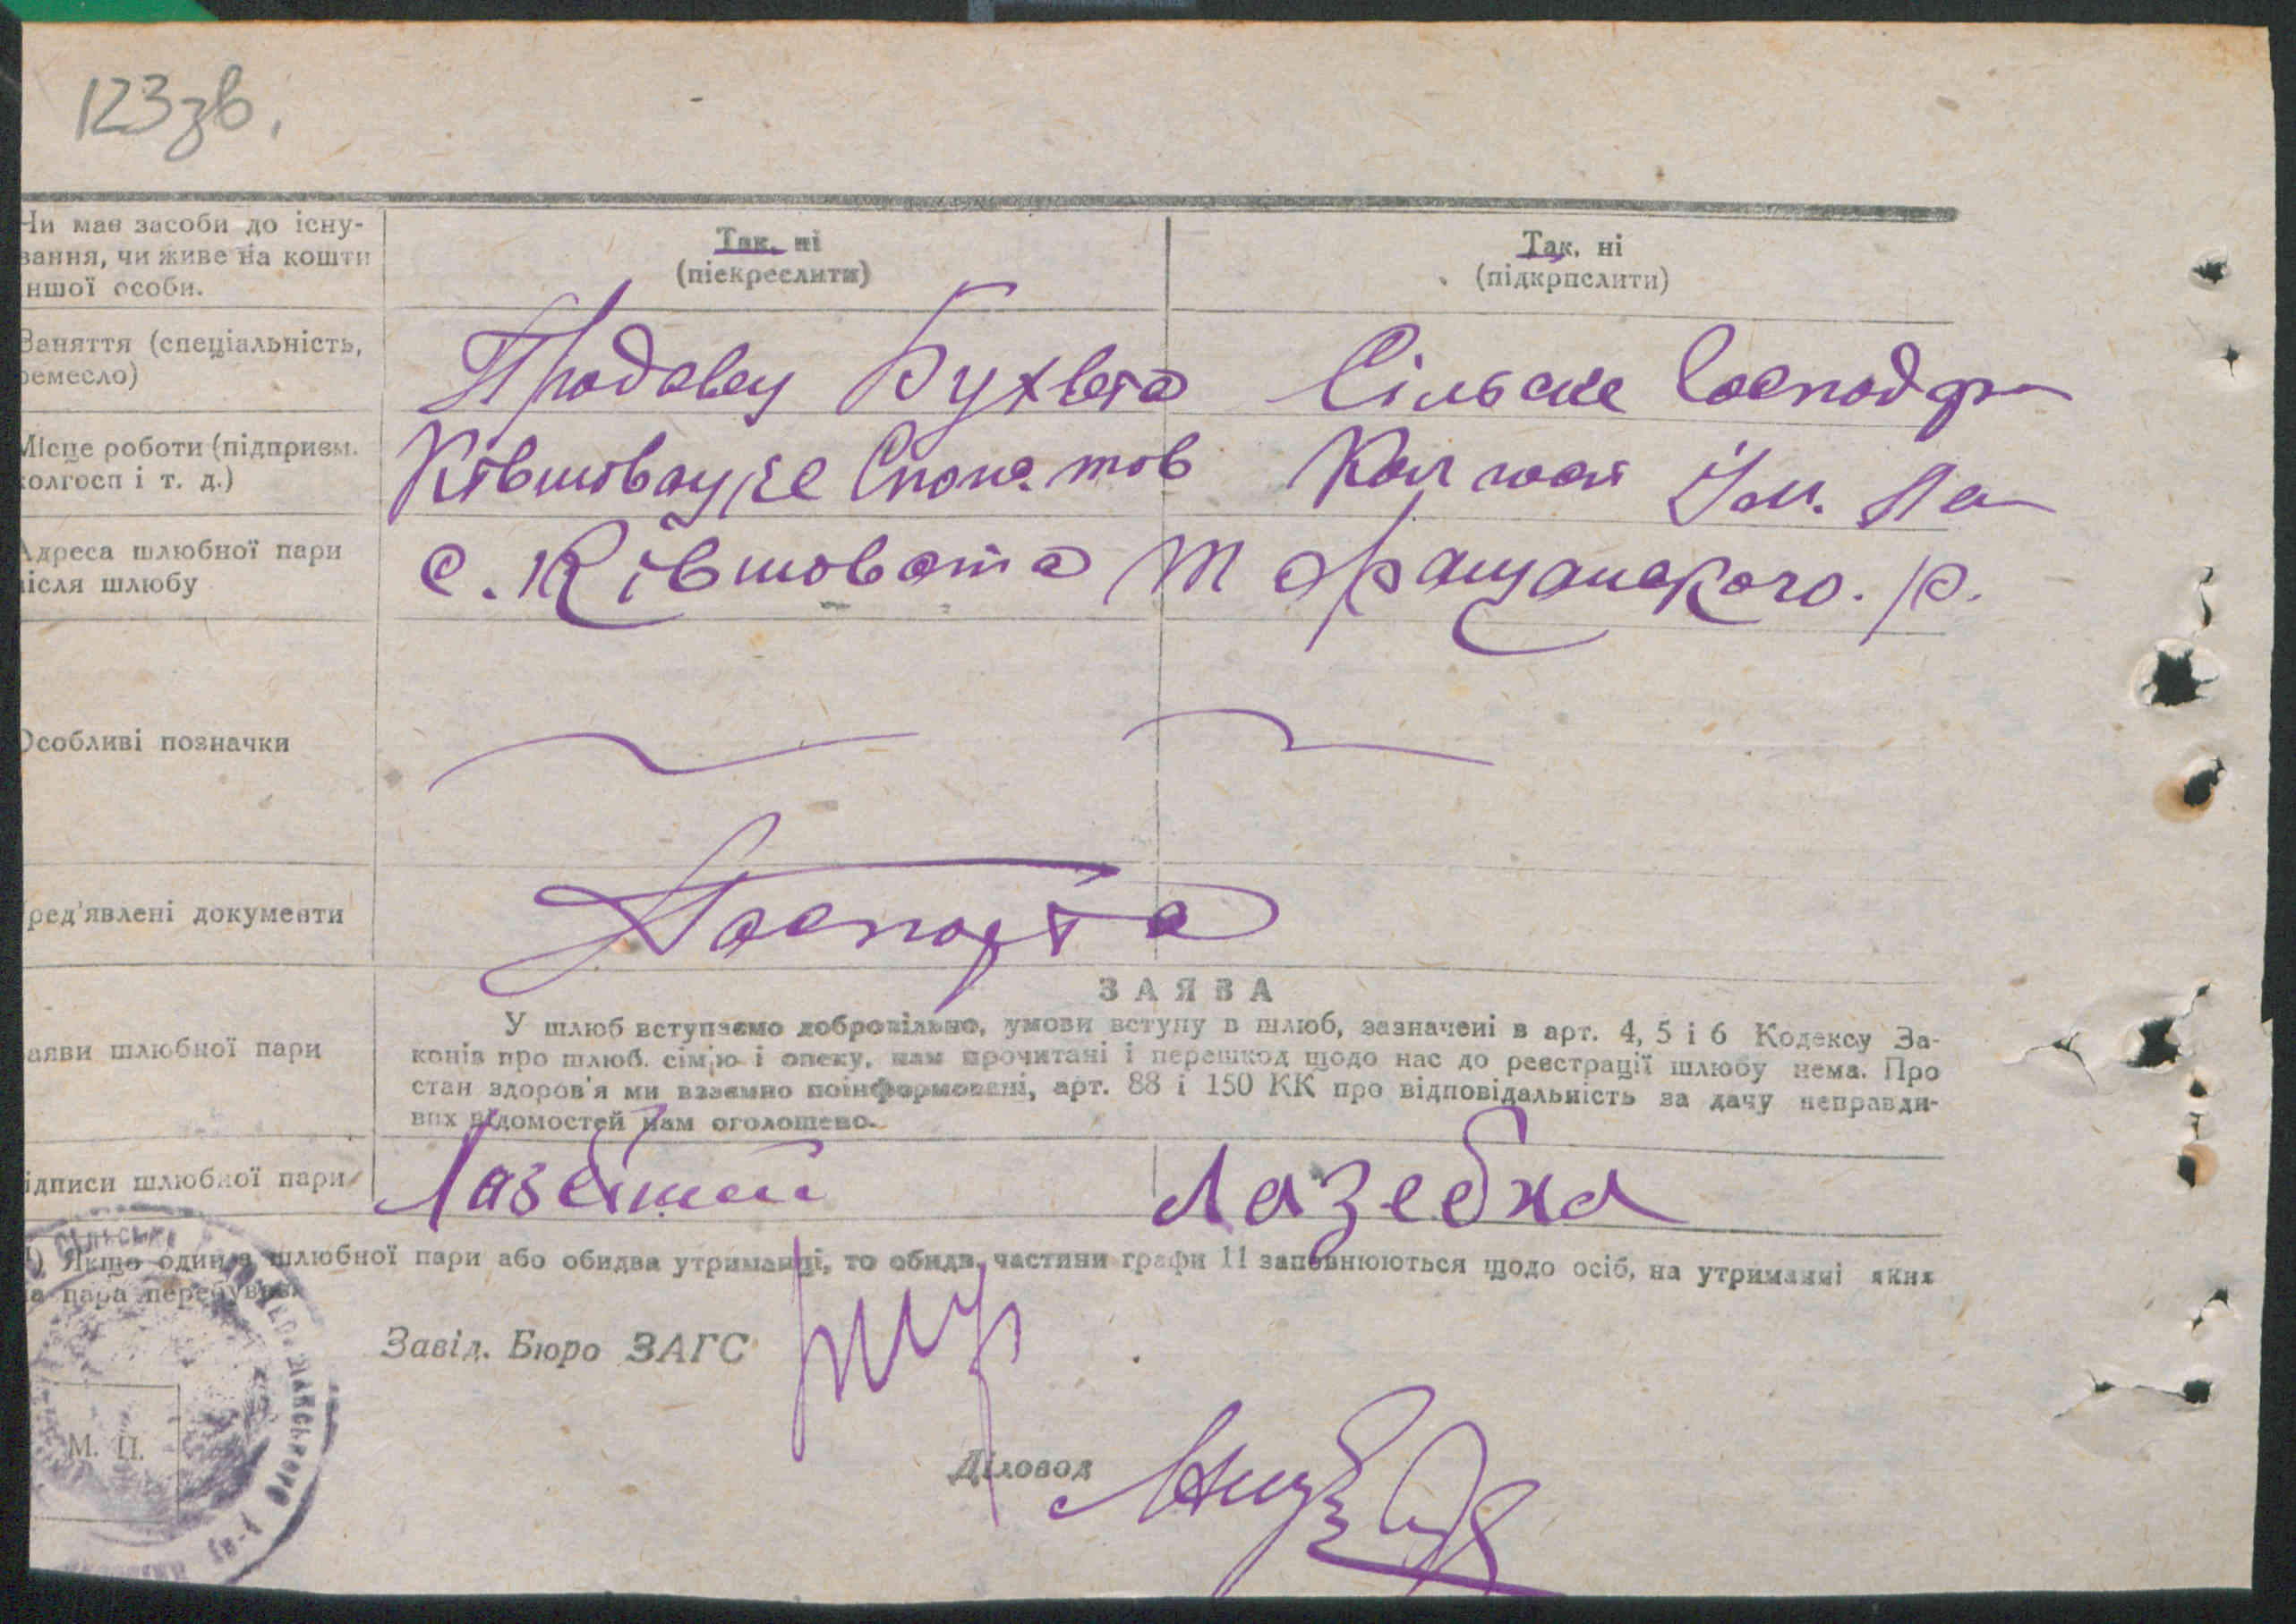 123зв.
Чи має засоби до існу-
вання, чи живе на кошти
іншої особи.
Так, ні
(піекреелити)
Так, ні
(підкрпслити)
Заняття (спеціальність,
ремесло)
Продавец Бухвета
Сільске Господар
Місце роботи (підприєм.
колгосп і т. д.)
Ківшовацке Спож. тов
Колгосп Ім.
Адреса шлюбної пари
після шлюбу
с. Ківшовата Таращанского. р.
Особливі позначки
Пред'явлені документи
Паспорта
ЗАЯВА
Заяви шлюбної пари
У шлюб вступаємо добровільно, умови вступу в шлюб, зазначені в арт. 4, 5 і 6 Кодексу За-
конів про шлюб. сім'ю і опеку, нам прочитані і перешкод щодо нас до реєстрації шлюбу нема. Про
стан здоров'я ми взаємно поінформовані, арт. 88 і 150 КК про відповідальність за дачу неправди-
вих відомостей нам оголошено.
Підписи шлюбної пари
Лазебний
Лазебна
1) Якщо один з шлюбної пари або обидва утриманці, то обидві частини графи 11 заповнюються щодо осіб, на утриманні яких
ця пара перебуває
Завід. Бюро ЗАГС
М. П.
Діловод